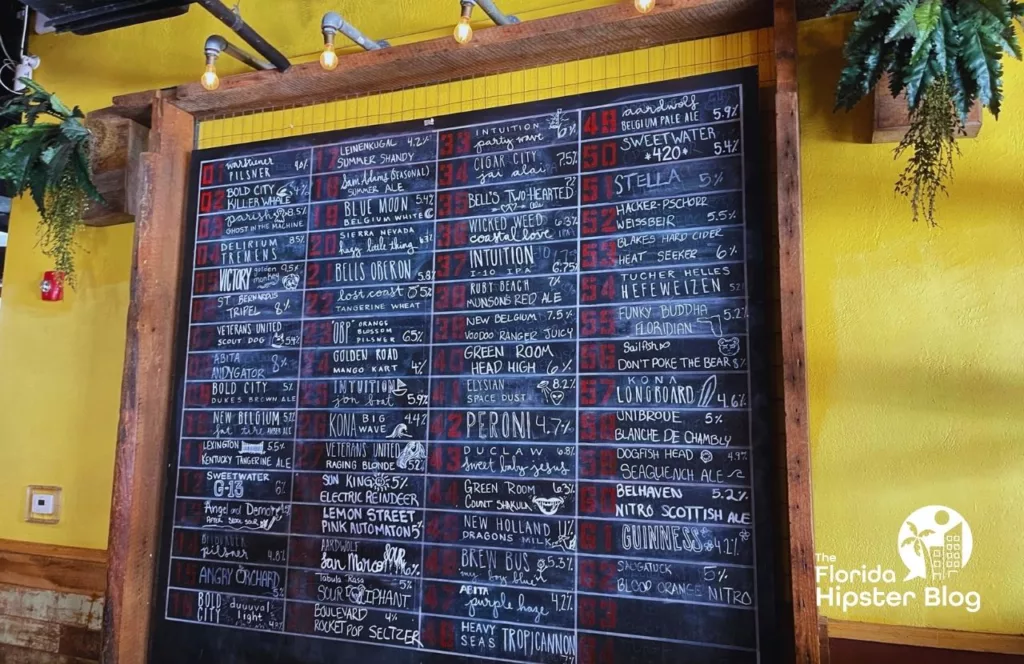 01 WARSTEINER PILSNER
02 BOLD CITY KILLER WHALE
03 parish 8.5%
GHOST IN THE MACHINE
04 DELIRIUM 8.5%
TREMENS
VICTORY golden monkey 9.5%
ST. BERNARDUS
TRIPEL 8%
VETERANS UNITED
SCOUT DOG
ABITA
ANDYGATOR 8%
BOLD CITY 5%
DUKES BROWN ALE
NEW BELGIUM
fat tire AMBER ALE
LEXINGTON 5.5%
KENTUCKY TANGERINE ALE
SWEETWATER
G-13
Angel and
pilsner
ANGRY ORCHARD
BOLD CITY duuuval light
17 LEINENKUGAL 4.2%
SUMMER SHANDY
18 Sam Adams (SEASONAL)
SUMMER ALE
19 BLUE MOON 5.4%
BELGIUM WHITE
20 SIERRA NEVADA
hazy little thing
21 BELLS OBERON 5.8%
22 lost coast 5%
TANGERINE WHEAT
"OBP" ORANGE BLOSSOM PILSNER
GOLDEN ROAD
MANGO KART 4%
INTUITION
jon boat 5.9%
KONA BIG WAVE 4.4%
VETERANS UNITED
RAGING BLONDE
SUN KING 5%
ELECTRIC REINDEER
LEMON STREET
PINK AUTOMATON 5%
AARDWOLF
San Marco
Tabula Rasa 5%
SOUR ELIPHANT
BOULEVARD 4%
ROCKET POP SELTZER
33 INTUITION
party wave 6%
34 CIGAR CITY 7.5%
jai alai
35 BELL'S TWO HEARTED 7%
36 WICKED WEED 6.3%
coastal love
37 INTUITION
I-10 IPA 6.75%
38 RUBY BEACH 7%
MUNSON'S RED ALE
39 NEW BELGIUM 7.5%
VOODOO RANGER JUICY
40 GREEN ROOM
HEAD HIGH 6%
41 ELYSIAN 8.2%
SPACE DUST
42 PERONI 4.7%
43 DUCLAW 6.8%
sweet baby jesus
44 GREEN ROOM 6.3%
COUNT SHAKULA
NEW HOLLAND
DRAGONS MILK
BREW BUS 5.3%
ABITA
purple haze 4.2%
HEAVY
SEAS TROPICANNON
49 aardwolf 5.9%
BELGIUM PALE ALE
50 SWEETWATER 5.4%
*420*
51 STELLA 5%
52 HACKER-PSCHORR
WEISSBEIR 5.5%
53 BLAKES HARD CIDER
HEAT SEEKER 6%
54 TUCHER HELLES
HEFEWEIZEN
55 FUNKY BUDDHA 5.2%
FLORIDIAN
56 Sailfish
DON'T POKE THE BEAR 8%
57 KONA
LONGBOARD 4.6%
58 UNIBROUE 5%
BLANCHE DE CHAMBLY
58 DOGFISH HEAD 4.9%
SEAQUENCH ALE
60 BELHAVEN 5.2%
NITRO SCOTTISH ALE
61 GUINNESS
SAUGATUCK 5%
BLOOD ORANGE NITRO
63
The
Florida
Hipster Blog